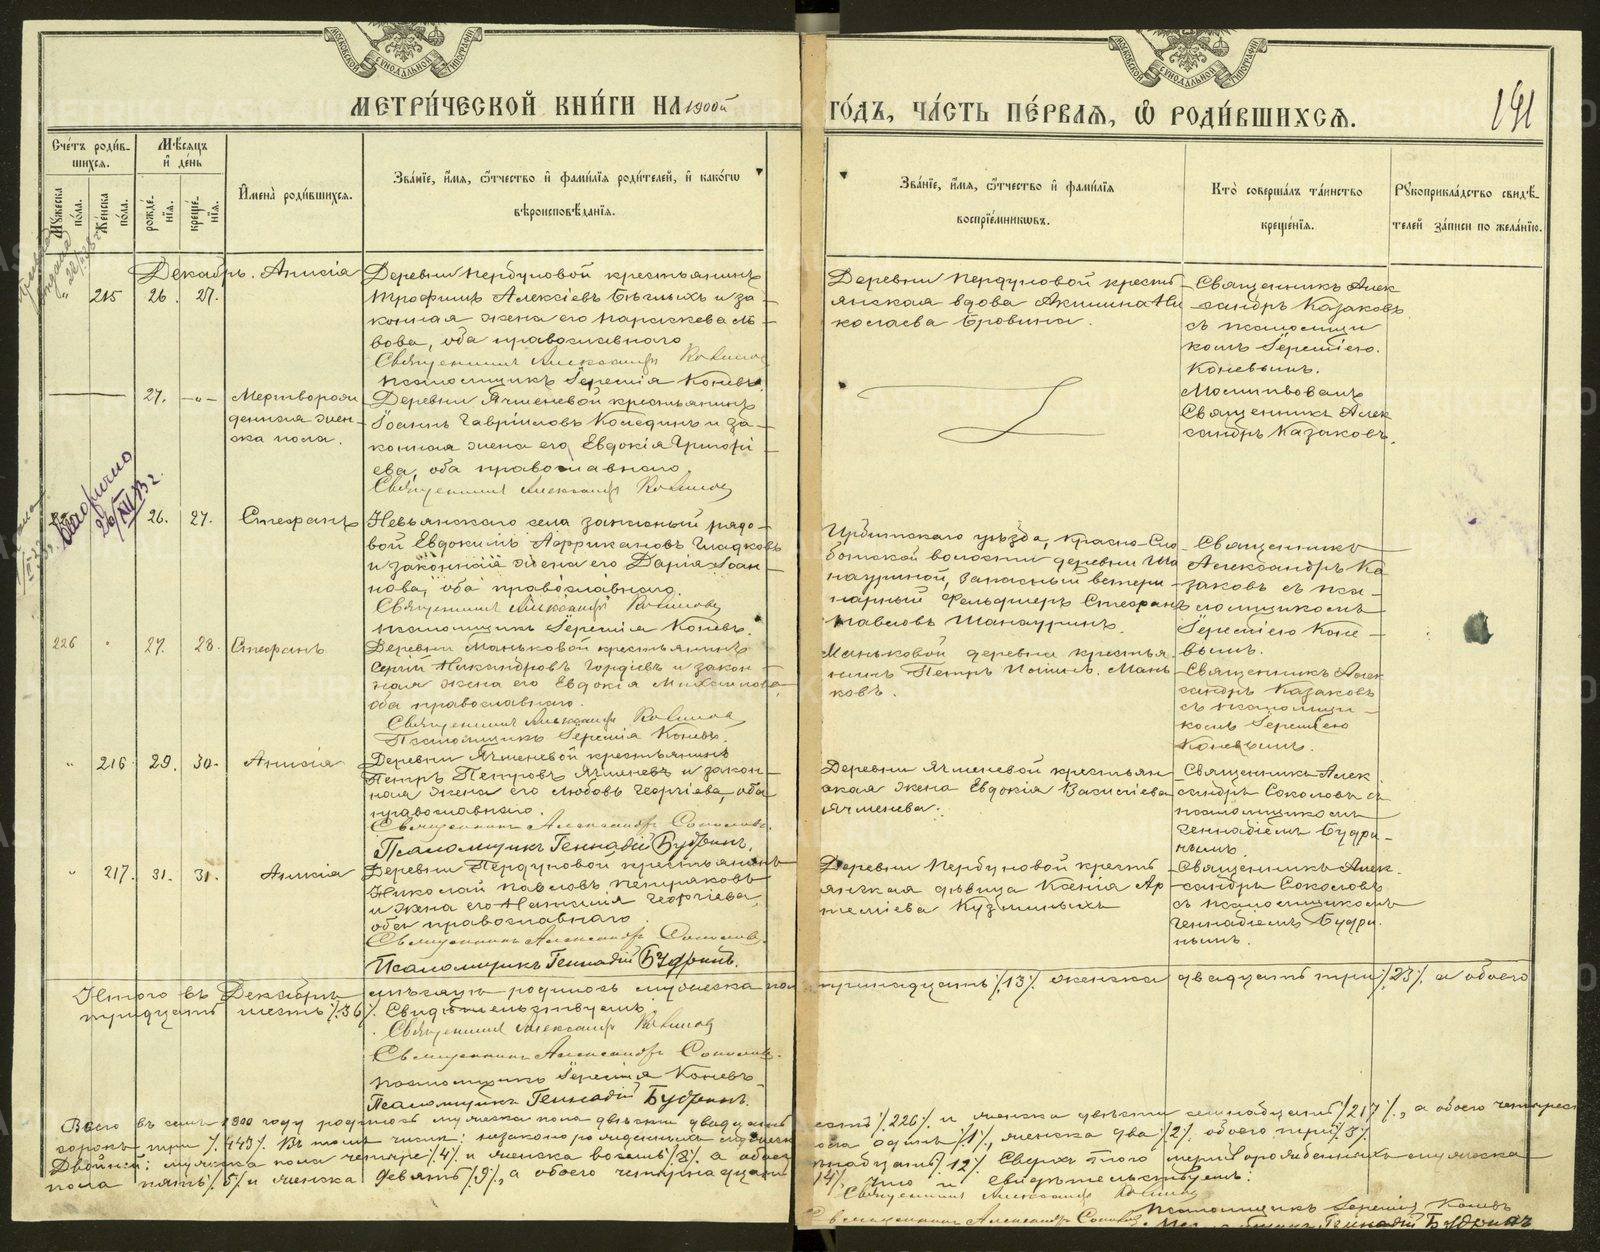 МОСКОВСКОЙ СѴНОДАЛЬНОЙ ТИПОГРАФІИ
МОСКОВСКОЙ СѴНОДАЛЬНОЙ ТИПОГРАФІИ
МЕТРИ́ЧЕСКОЙ КНИ́ГИ НА 1900й
ГО́ДЪ, ЧА́СТЬ ПЕ́РВАѦ, Ѡ҆ РОДИ́ВШИХСѦ.
191
Сче́тъ роди́в-
шихсѧ.
Мѣ́сѧцъ
и҆ де́нь
Мꙋжеска
по́ла.
Же́нска
по́ла.
рожде́-
нїѧ.
креще́-
нїѧ.
И҆мена̀ роди́вшихсѧ.
Зва́нїе, и҆́мѧ, ѻ҆́тчество и҆ фами́лїѧ роди́телей, и҆ како́гѡ
вѣроисповѣ́данїѧ.
Зва́нїе, и҆́мѧ, ѻ҆́тчество и҆ фами́лїѧ
воспрїе́мниковъ.
Кто̀ соверша́лъ та́инство
креще́нїѧ.
Рꙋкоприкла́дство свидѣ́-
телей за́писи по жела́нїю.
Декабрь.
" 215 26. 27.
Анисія
Деревни Пердуновой крестьянинъ
Трофимъ Алексіевъ Бѣглыхъ и за-
конная жена его Параскева Ль-
вова, оба православнаго
Священникъ Александръ Казаковъ
Псаломщикъ Іеремія Коневъ.
Деревни Пердуновой кресть-
янская вдова Акилина Ни
колаева Бровина.
Священникъ Алек
сандръ Казаковъ
съ псаломщи
комъ Іереміею
Коневымъ.
27. -"-
Мертворож
денная жен-
ска пола.
Деревни Ячменевой крестьянинъ
Іоаннъ Гавріиловъ Коледин и за-
конная жена его Евдокія Григорі-
ева, оба православнаго.
Священникъ Александръ Казаковъ
Молитвовалъ
Священникъ Алек
сандръ Казаковъ.
26. 27.
Стефанъ
Невьянскаго села запасный рядо-
вой Евдокимъ Африкановъ Гладковъ
и законная жена его Дарія Іоан-
нова, оба православнаго.
Священникъ Александръ Казаковъ
Псаломщикъ Іеремія Коневъ.
Ирбитскаго уѣзда, Красно-Сло
бодской волости деревни Ша
науриной, запасный ветери-
нарный фельдшеръ Стефанъ
Павловъ Шанауринъ.
Священникъ
Александръ Ка
заковъ съ пса-
ломщикомъ
Іереміею Коне-
вымъ.
226 " 27. 28.
Стефанъ
Деревни Маньковой крестьянинъ
Сергій Никандровъ Гордіевъ и закон-
ная жена его Евдокія Михаилова,
оба православнаго.
Священникъ Александръ Казаковъ
Псаломщикъ Іеремія Коневъ.
Маньковой деревни крестья-
нинъ Петръ Маньковъ.
Священникъ Алек
сандръ Казаковъ
съ псаломщи-
комъ Іереміею
Коневымъ.
" 216 29. 30.
Анисія
Деревни Ячменевой крестьянинъ
Петръ Петровъ Ячменевъ и закон-
ная жена его Любовь Георгіева, оба
православнаго.
Священникъ Александръ Соколовъ.
Псаломщикъ Геннадій Будринъ.
Деревни Ячменевой крестьян
ская жена Евдокія Василіева
Ячменева.
Священникъ Алек
сандръ Соколовъ съ
псаломщикомъ
Геннадіемъ Будри-
нымъ.
" 217. 31. 31.
Анисія
Деревни Пердуновой крестьянинъ
Николай Павловъ Петряковъ
и жена его Наталія Георгіева,
оба православнаго.
Священникъ Александръ Соколовъ.
Псаломщикъ Геннадій Будринъ.
Деревни Пердуновой кресть
янская дѣвица Ксенія Ар
теміева Кузьминыхъ
Священникъ Алек-
сандръ Соколовъ
съ псаломщикомъ
Геннадіемъ Будри-
нымъ.
Итого въ Декабрѣ мѣсяцѣ родилось мужеска пола тринадцать /.13/. женска двадцать три /.23/. а обоего
тридцать шесть /.36/. Свидѣтельствуемъ
Священникъ Александръ Казаковъ
Священникъ Александръ Соколовъ.
Псаломщикъ Іеремія Коневъ.
Псаломщикъ Геннадій Будринъ.
Всего въ семъ 1900 году родилось мужеска пола двѣсти двадцать шесть /.226/. и женска двѣсти семнадцать /.217/., а обоего четырес
сорокъ три /.443/. Въ томъ числѣ: незаконорожденныхъ мужеск пола одинъ /.1/., женска два /.2/. обоего три /.3/.
Двойней: мужеска пола четыре /.4/. и женска восемь /.8/. а обоего двѣнадцать /.12/. Сверхъ того мерворожденныхъ мужеска
пола пять /.5/. и женска девять /.9/., а обоего четырнадцать /.14/. Что и свидѣтельствуемъ.
Священникъ Александръ Казаковъ
Священникъ Александръ Соколовъ
Псаломщикъ Іеремія Коневъ
Псаломщикъ Геннадій Будринъ